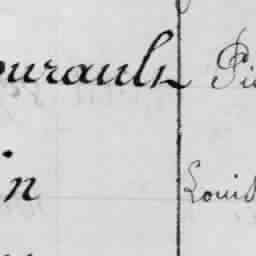 ourault Pi
in Louis